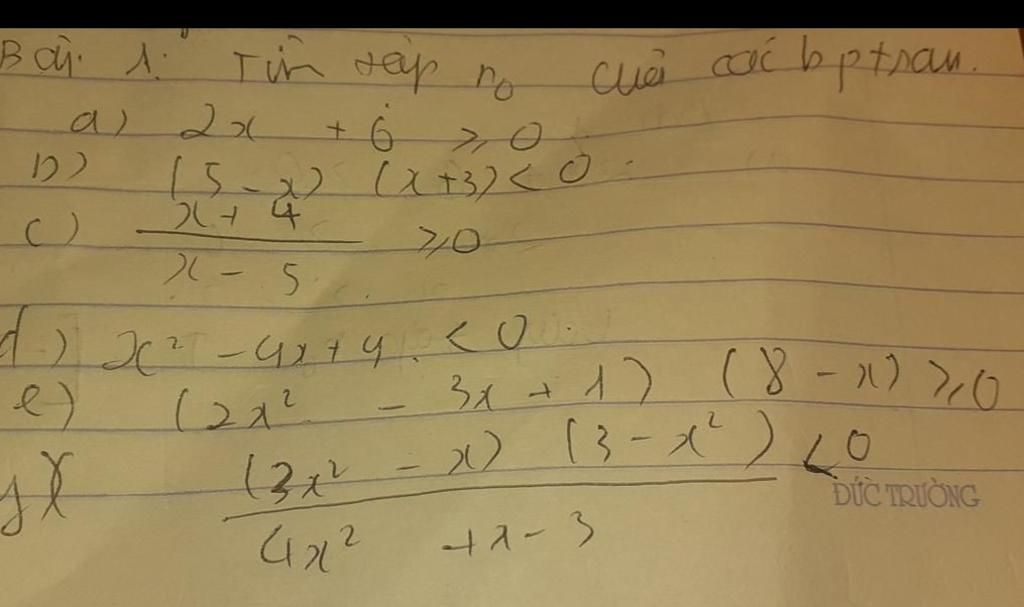 Bài 1: Tìm tập n₀ của các bptsau.
a) 2x + 6 ≥ 0
b) (5 - x) (x+3) < 0
c) \frac{x + 4}{x - 5} ≥ 0
d) x² - 4x + 4 < 0.
e) (2x² - 3x + 1) (8 - x) ≥ 0
\frac{(3x² - x) (3 - x²)}{4x² + x - 3} < 0
ĐỨC TRƯỜNG